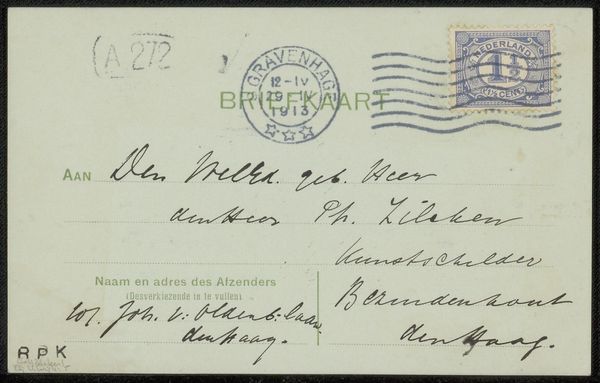 (A 272
'S GRAVENHAGE
12-IV
29 IV
1913
NEDERLAND
1½
(1½ CENT)
BRIEFKAART
AAN Den WelEd. geb. Heer
den Heer Ph. Zilcken
Kunstschilder
Bezuidenhout
den Haag.
Naam en adres des Afzenders
(Desverkiezende in te vullen).
Joh. v: Oldenb: laan
den Haag.
R P K